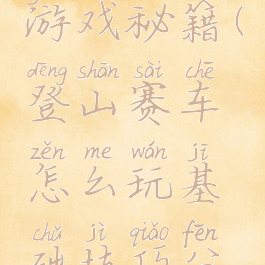 游戏秘籍(
dēng shān sài chē
登山赛车
zěn me wán jī
怎么玩基
chǔ jì qiǎo fēn
础技巧分